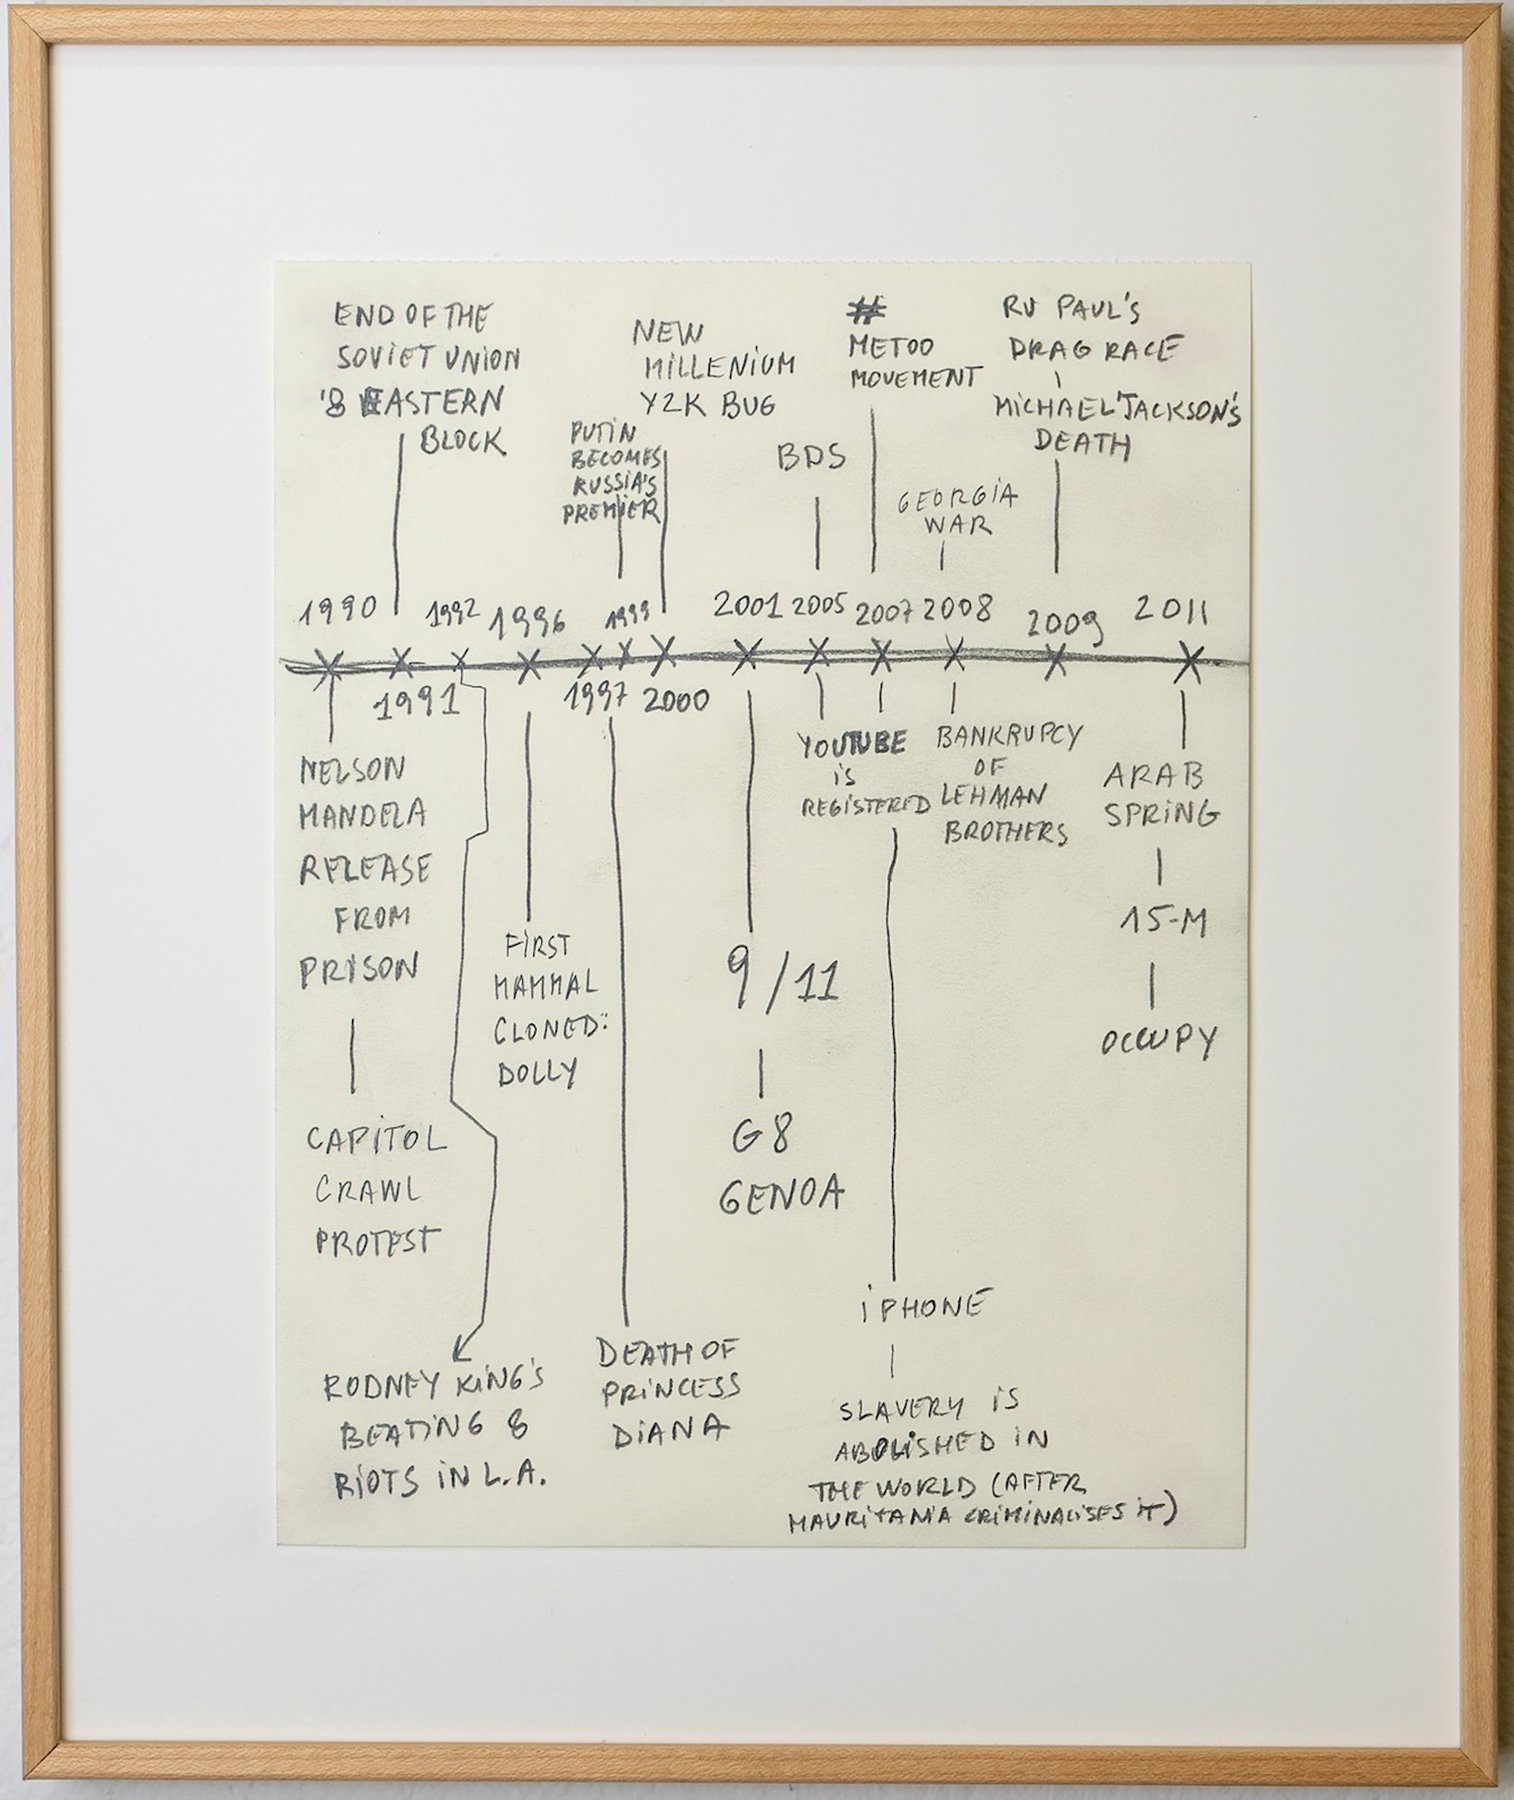 END OF THE
SOVIET UNION
& EASTERN
BLOCK
NEW
MILLENIUM
Y2K BUG
PUTIN
BECOMES
RUSSIA'S
PREMIER
BDS
#
METOO
MOVEMENT
GEORGIA
WAR
RU PAUL'S
DRAG RACE
MICHAEL JACKSON'S
DEATH
1990 1992 1996 1999 2001 2005 2007 2008 2009 2011
1991 1997 2000
NELSON
MANDELA
RELEASE
FROM
PRISON
CAPITOL
CRAWL
PROTEST
RODNEY KING'S
BEATING &
RIOTS IN L.A.
FIRST
MAMMAL
CLONED:
DOLLY
DEATH OF
PRINCESS
DIANA
9/11
G8
GENOA
YOUTUBE
IS
REGISTERED
iPHONE
SLAVERY IS
ABOLISHED IN
THE WORLD (AFTER
MAURITANIA CRIMINALISES IT)
BANKRUPCY
OF
LEHMAN
BROTHERS
ARAB
SPRING
15-M
OCCUPY